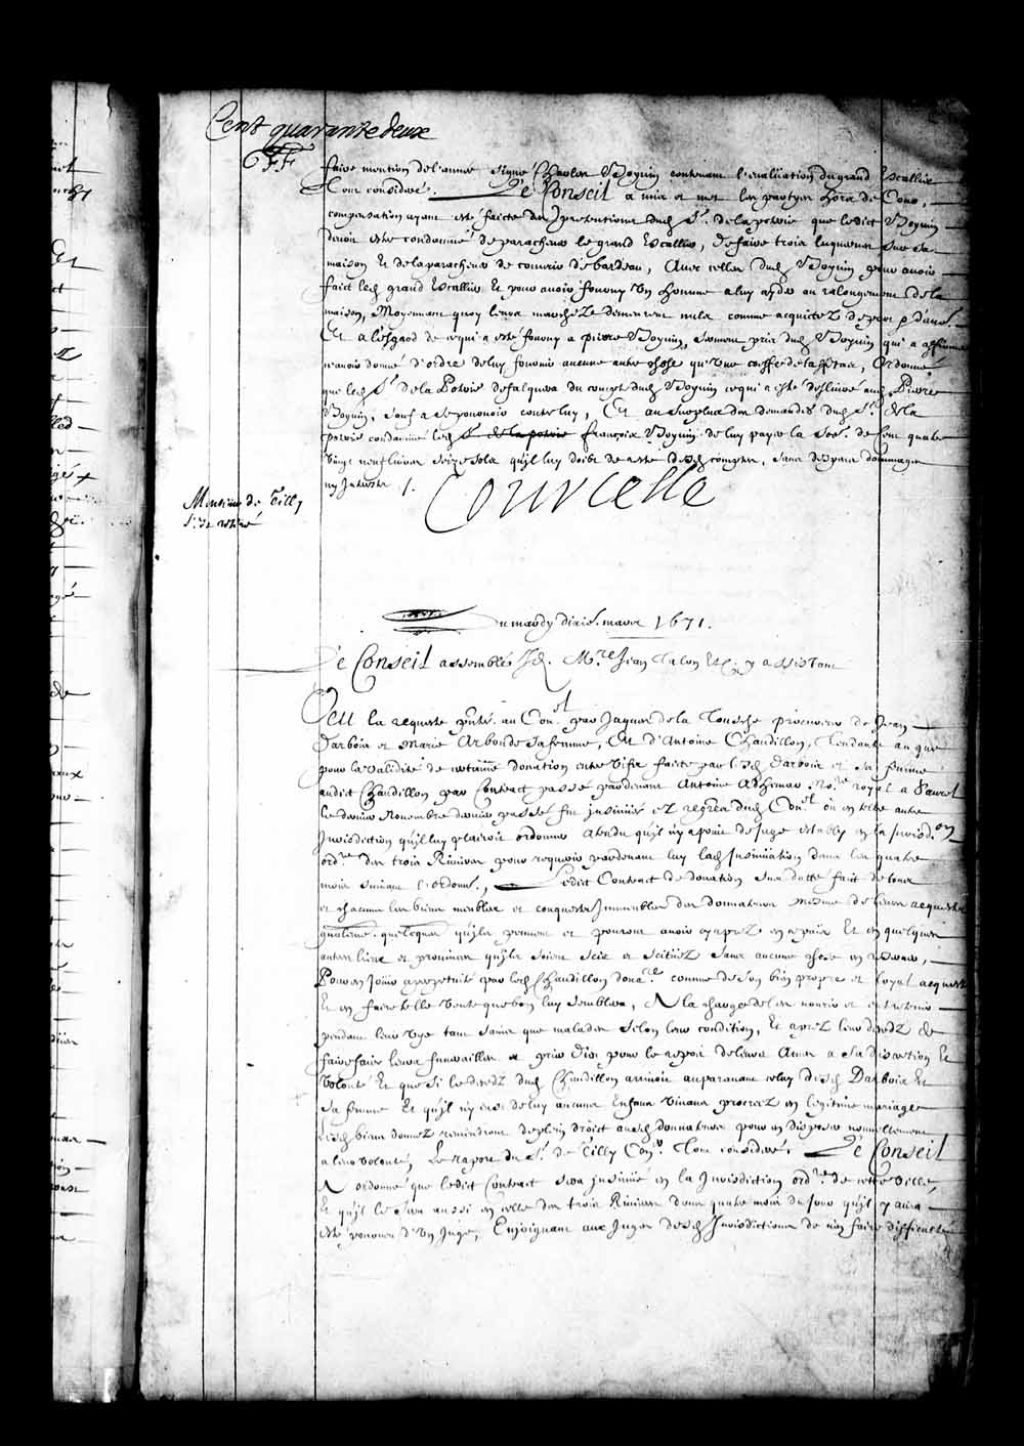 Cent quarante deux
faire mention de l'année signé Charles Boyuin contenant l'evaluation du grand Escallier
Tout consideré. Le Conseil a mis et met les partyes hors de Cour,
compensation ayant esté faicte des pretentions dud. Sr. de la poterie que ledict Boyuin
deuoit estre condamné de paracheuer le grand Escallier, de faire trois lucarnes sur sa
maison Et de la paracheuer de couurir de bardeau, Auec celles dud. Boyuin pour auoir
faict led. grand Escallier Et pour auoir fourny Un homme a luy ayder au ralongement de la
maison, Moyennant quoy leurs marchez demeurent nuls comme acquictez de part & d'autre
Et a l'esgard de ce qui a esté fourny a pierre Boyuin, serment pris dud. Boyuin qui a affirmé
n'auoir donné d'ordre de luy fournir aucune autre chose qu'Une coeffe de taffetas, Ordonné
que led. Sr. de la Poterie defalquera du compte dud. Boyuin ce qui a esté desliuré aud. Pierre
Boyuin, sauf a se pouruoir contre luy, Et au surplus des demandes dud. Sr. de la
poterie condamné led. Sr. de la poterie françois Boyuin de luy payer la soe. de Cent quatre
Vingt neuf liures seize sols qu'il luy doibt de reste desd. comptes, sans despens dommages
ny Interests /.
Courcelle
Monsieur de Tilly
s'est retiré
Du mardy dixie. mars 1671.
Le Conseil assemblé Mre. Jean Talon Etc. y assistant
Veu la requeste pnte. au Conel. par Jaques de la Tousche procureur de Jean
Darbois et Marie Arbonde sa femme, Et d'Antoine Chaudillon, Tendante au que
pour la validité de certaine donation entre Vifs faicte par lesd. Darbois et sa femme
audict Chaudillon par Contract passé pardeuant Antoine Adhemar No.re royal a Saurel
le dernier Nouembre dernier passé fut insinüé Et regrée dud. Conel. ou en telle autre
Jurisdiction qu'il luy plairoit ordonner attendu qu'il n'y a point de Juge estably en la Jurisdon.
ordre. des trois Riuieres pour requerir pardeuant luy lad. Insinüation dans les quatre
mois suiuant l'ordonn., Ledict Contract de donation sus datté fait de tous
et chacuns les biens meubles et conquests Immeubles des donnateurs mesme de leurs acquests
quelconques qu'ils peuuent et pourront auoir cy apres en ce païs Et en quelques
autres lieux et prouinces qu'ils soient sciz et scituez sans aucune chose en reseruer,
Pour en Joüir a perpetuité par led. Chaudillon donare. comme de son bien propre et loyal acquest
Et en faire telle Vente que bon luy semblera, A la charge de les nourir et entretenir
pendant leur Vye tant sains que malades selon leur condition, Et aprez leur decedz de
faire faire leurs funerailles et prier Dieu pour le repos de leurs Ames a sa discretion Et
volonté Et que si le decedz dud. Chaudillon arriuoit auparauant celuy desd. Darbois Et
sa femme Et qu'il n'y eust de luy aucuns Enfans viuans procreez en legitime mariage
lesd. biens donnez reuiendront de plein droict ausd. donnateurs pour en disposer nouuellement
a leur volonté, Le raport du Sr. de Tilly Coner. Tout consideré. Le Conseil
A ordonné que ledict Contract sera insinüé en la Jurisdiction ordre. de cette Ville,
Et qu'il le sera aussi en celle des trois Riuieres dans quatre mois du jour qu'il y aura
esté pourueu d'Un Juge, Enjoignant aux Juges desd. Jurisdictions de n'en faire difficulté